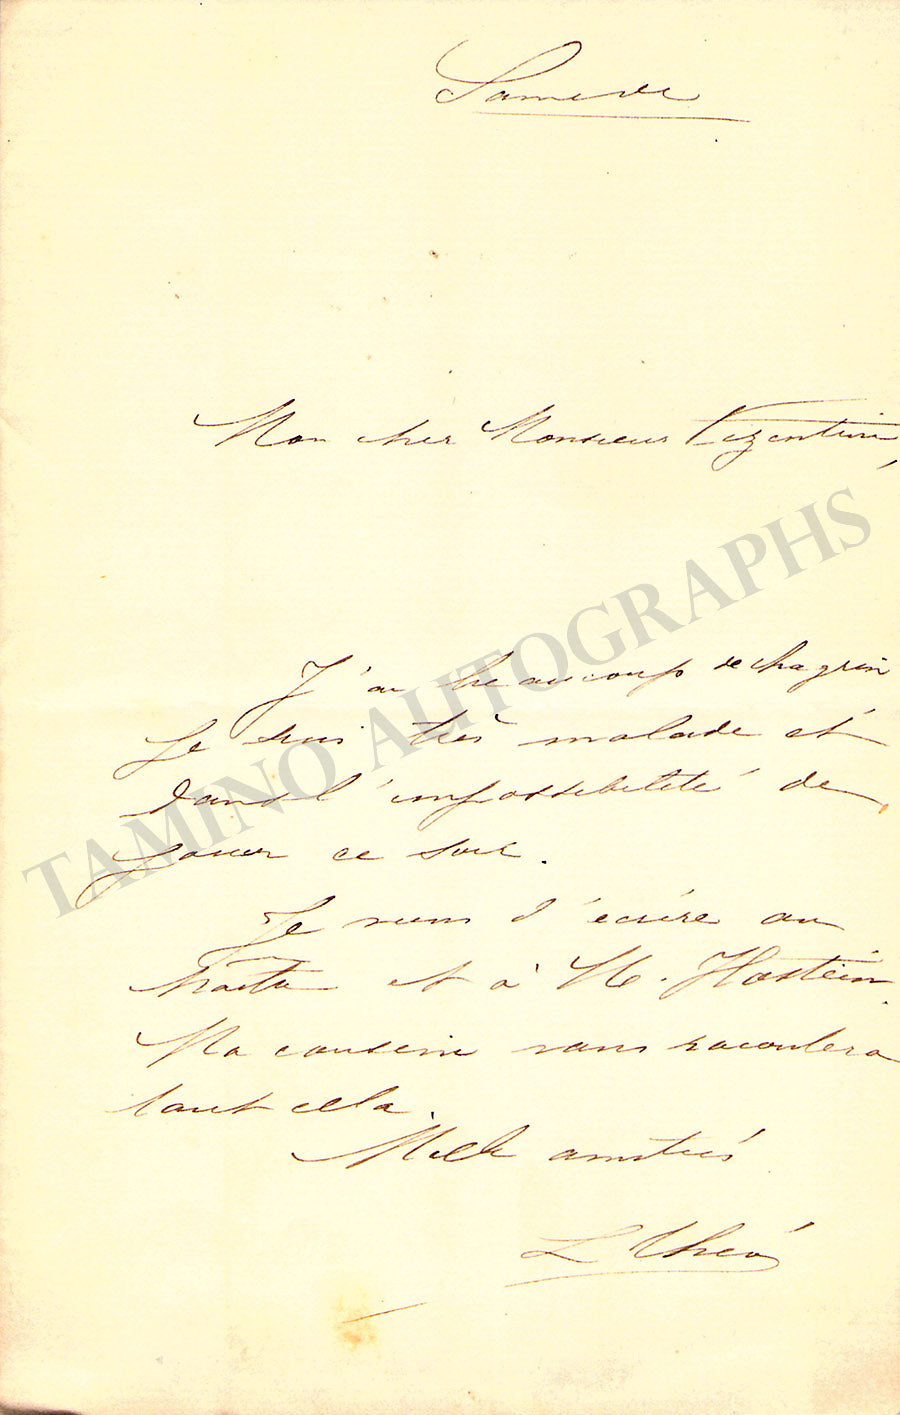 Samedi
Mon cher Monsieur Vizentini,
J'ai beaucoup de chagrin
Je suis très malade et
dans l'impossibilité de
Jouer ce soir.
Je viens d'écrire au
et à M. Hostein.
Ma cousine vous racontera
tout cela.
Mille amitiés
L Théo
TAMINO AUTOGRAPHS